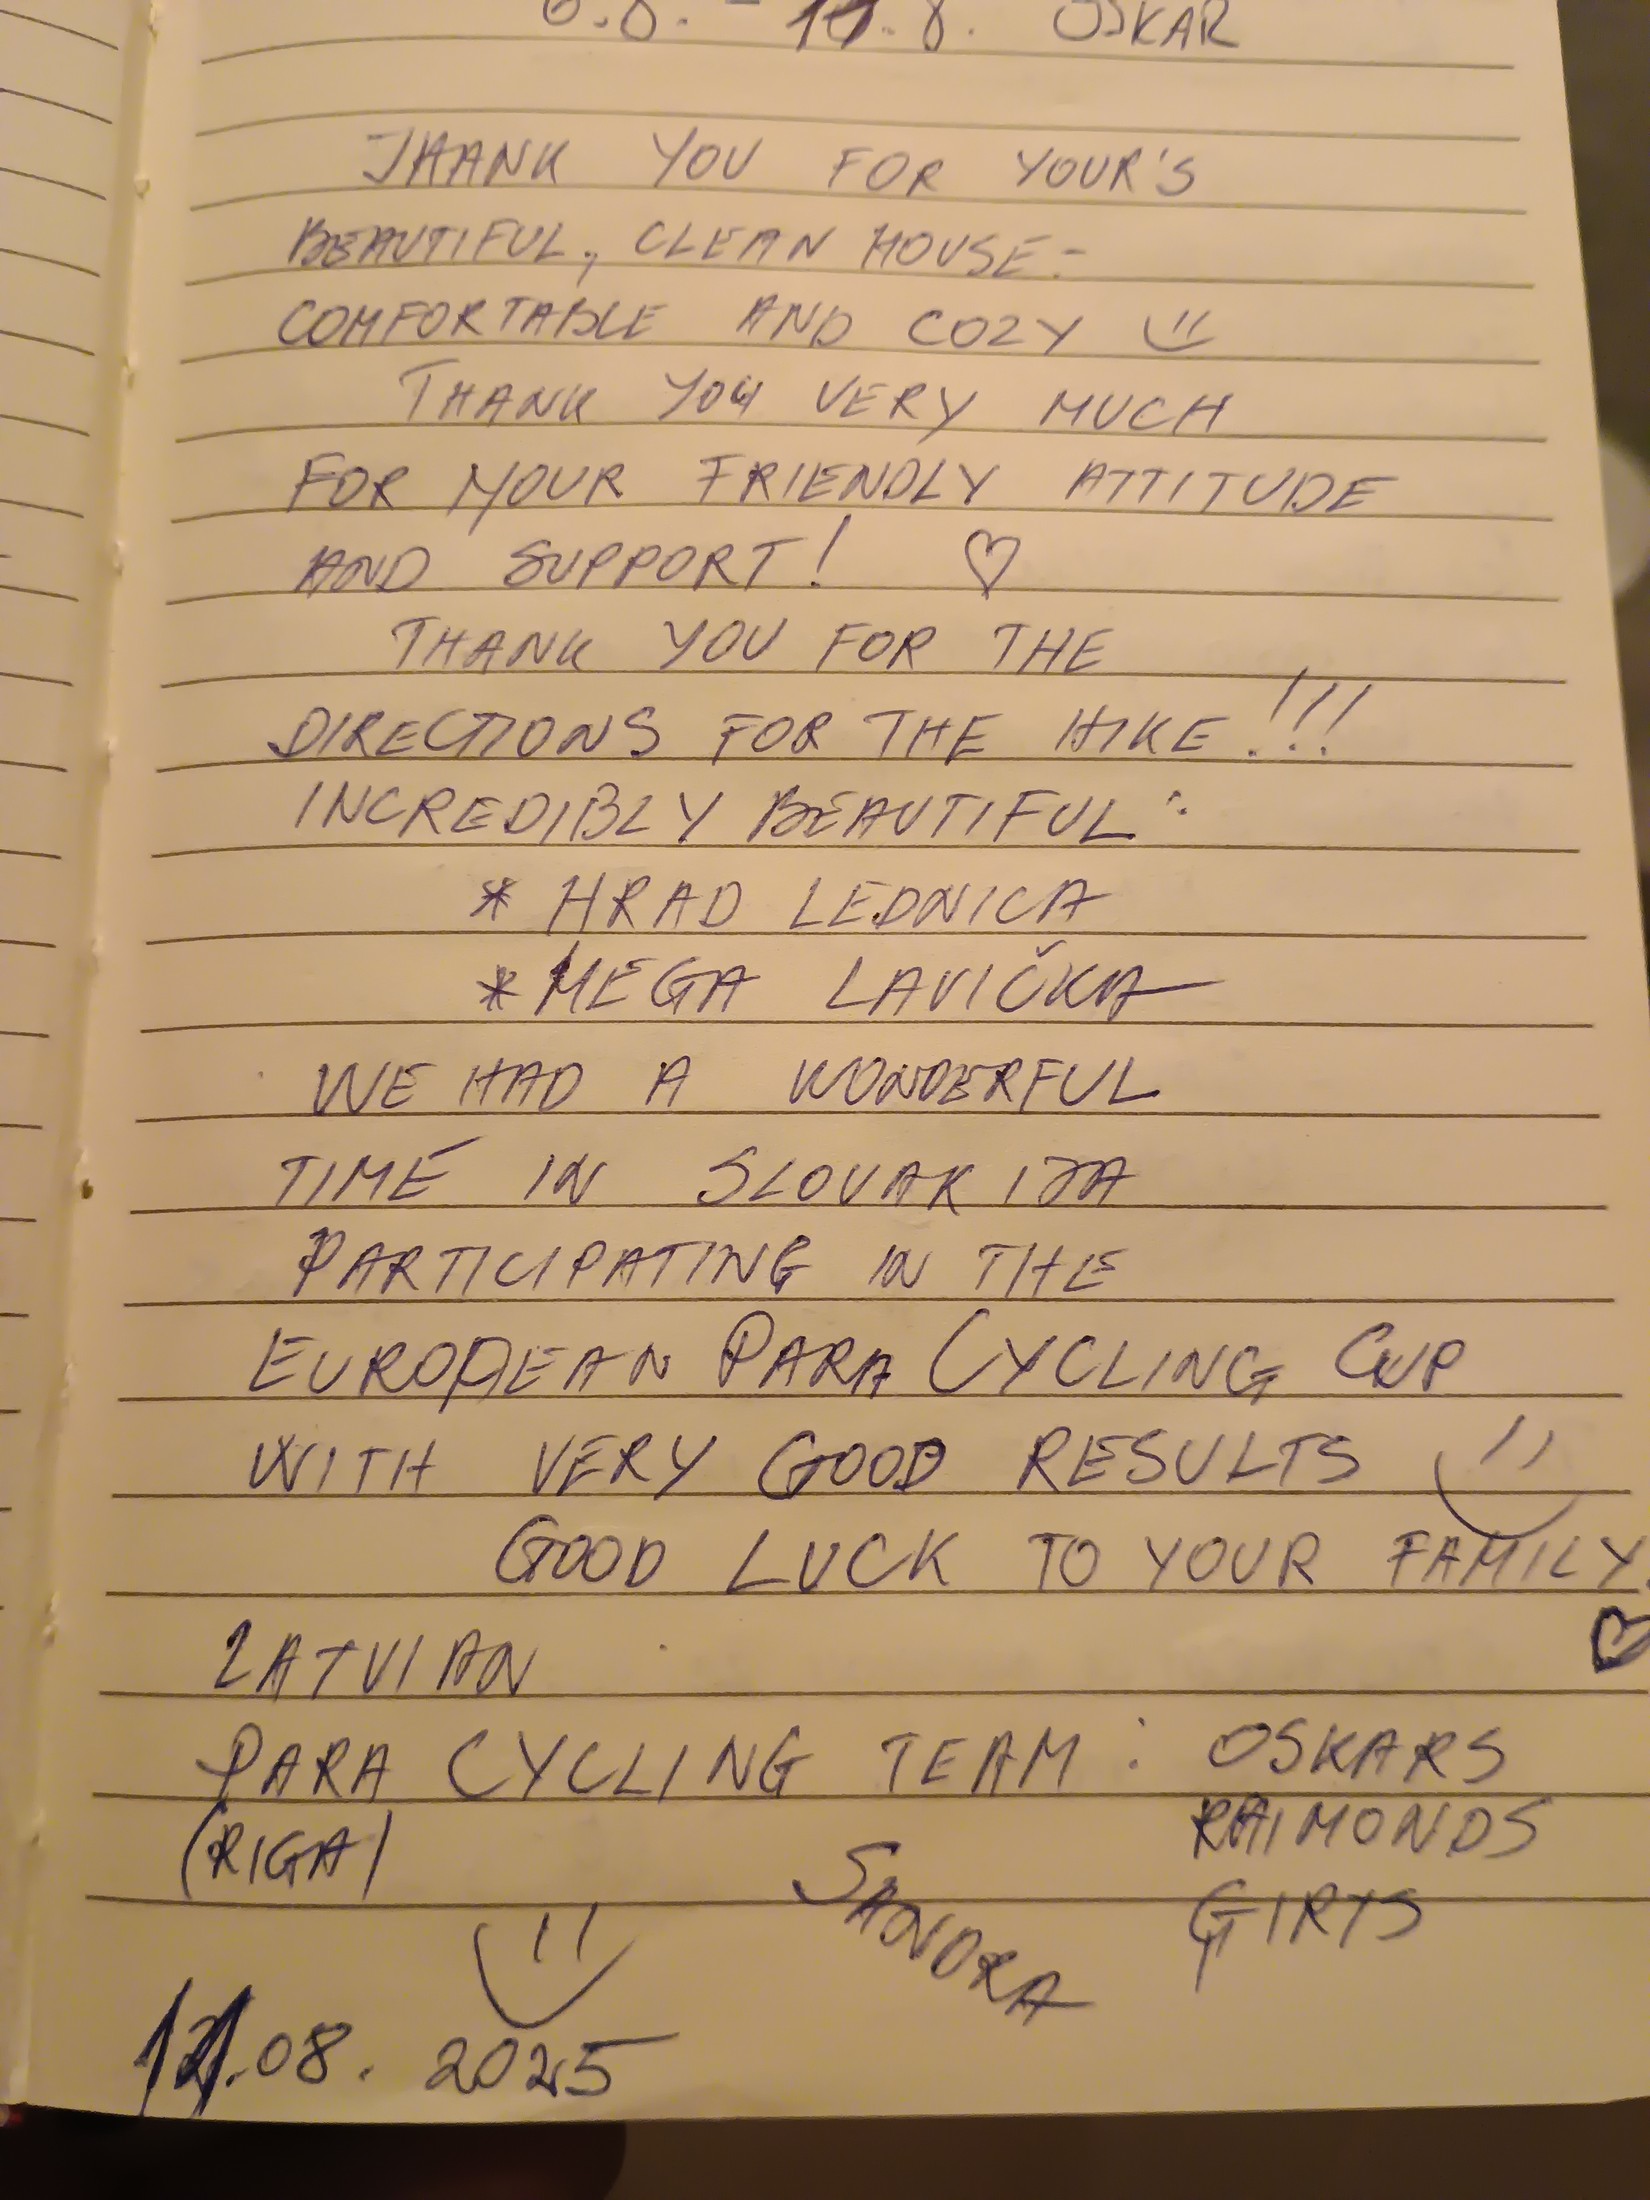 6.8. - 11.8. OSKAR
JHANK YOU FOR YOUR'S
BEAUTIFUL, CLEAN HOUSE -
COMFORTABLE AND COZY
THANK YOU VERY MUCH
FOR YOUR FRIENDLY ATTITUDE
AND SUPPORT! ♡
THANK YOU FOR THE
DIRECTIONS FOR THE HIKE!!!
INCREDIBLY BEAUTIFUL:
* HRAD LEDNICA
* MEGA LAVIČKA
WE HAD A WONDERFUL
TIME IN SLOVAKIJA
PARTICIPATING IN THE
EUROPEAN PARA CYCLING CUP
WITH VERY GOOD RESULTS
GOOD LUCK TO YOUR FAMILY.
♡
LATVIAN
PARA CYCLING TEAM: OSKARS
(RIGA) RAIMONDS
SANDRA GIRTS
11.08.2025